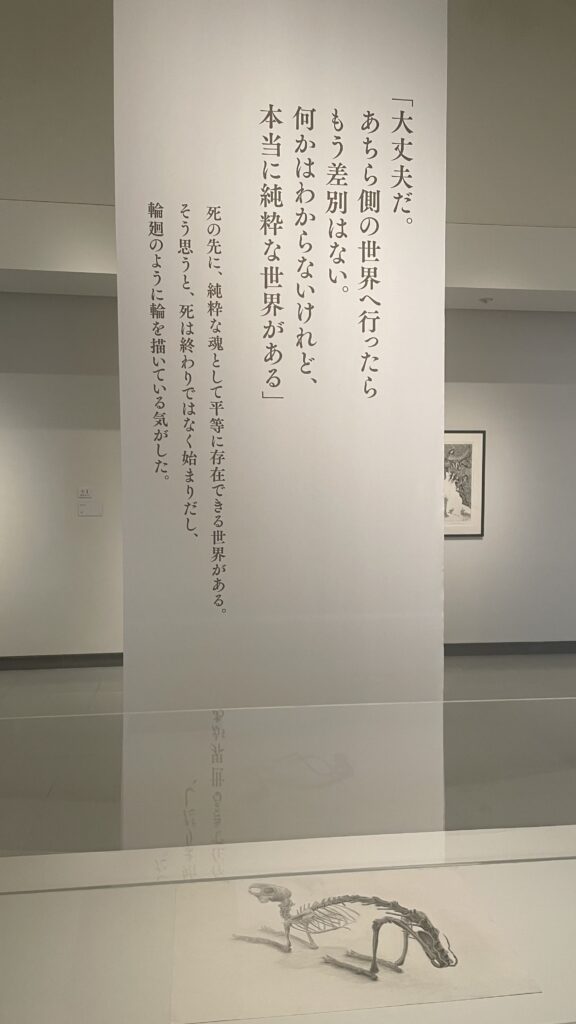 「大丈夫だ。
あちら側の世界へ行ったら
もう差別はない。
何かはわからないけれど、
本当に純粋な世界がある」
死の先に、純粋な魂として平等に存在できる世界がある。
そう思うと、死は終わりではなく始まりだし、
輪廻のように輪を描いている気がした。